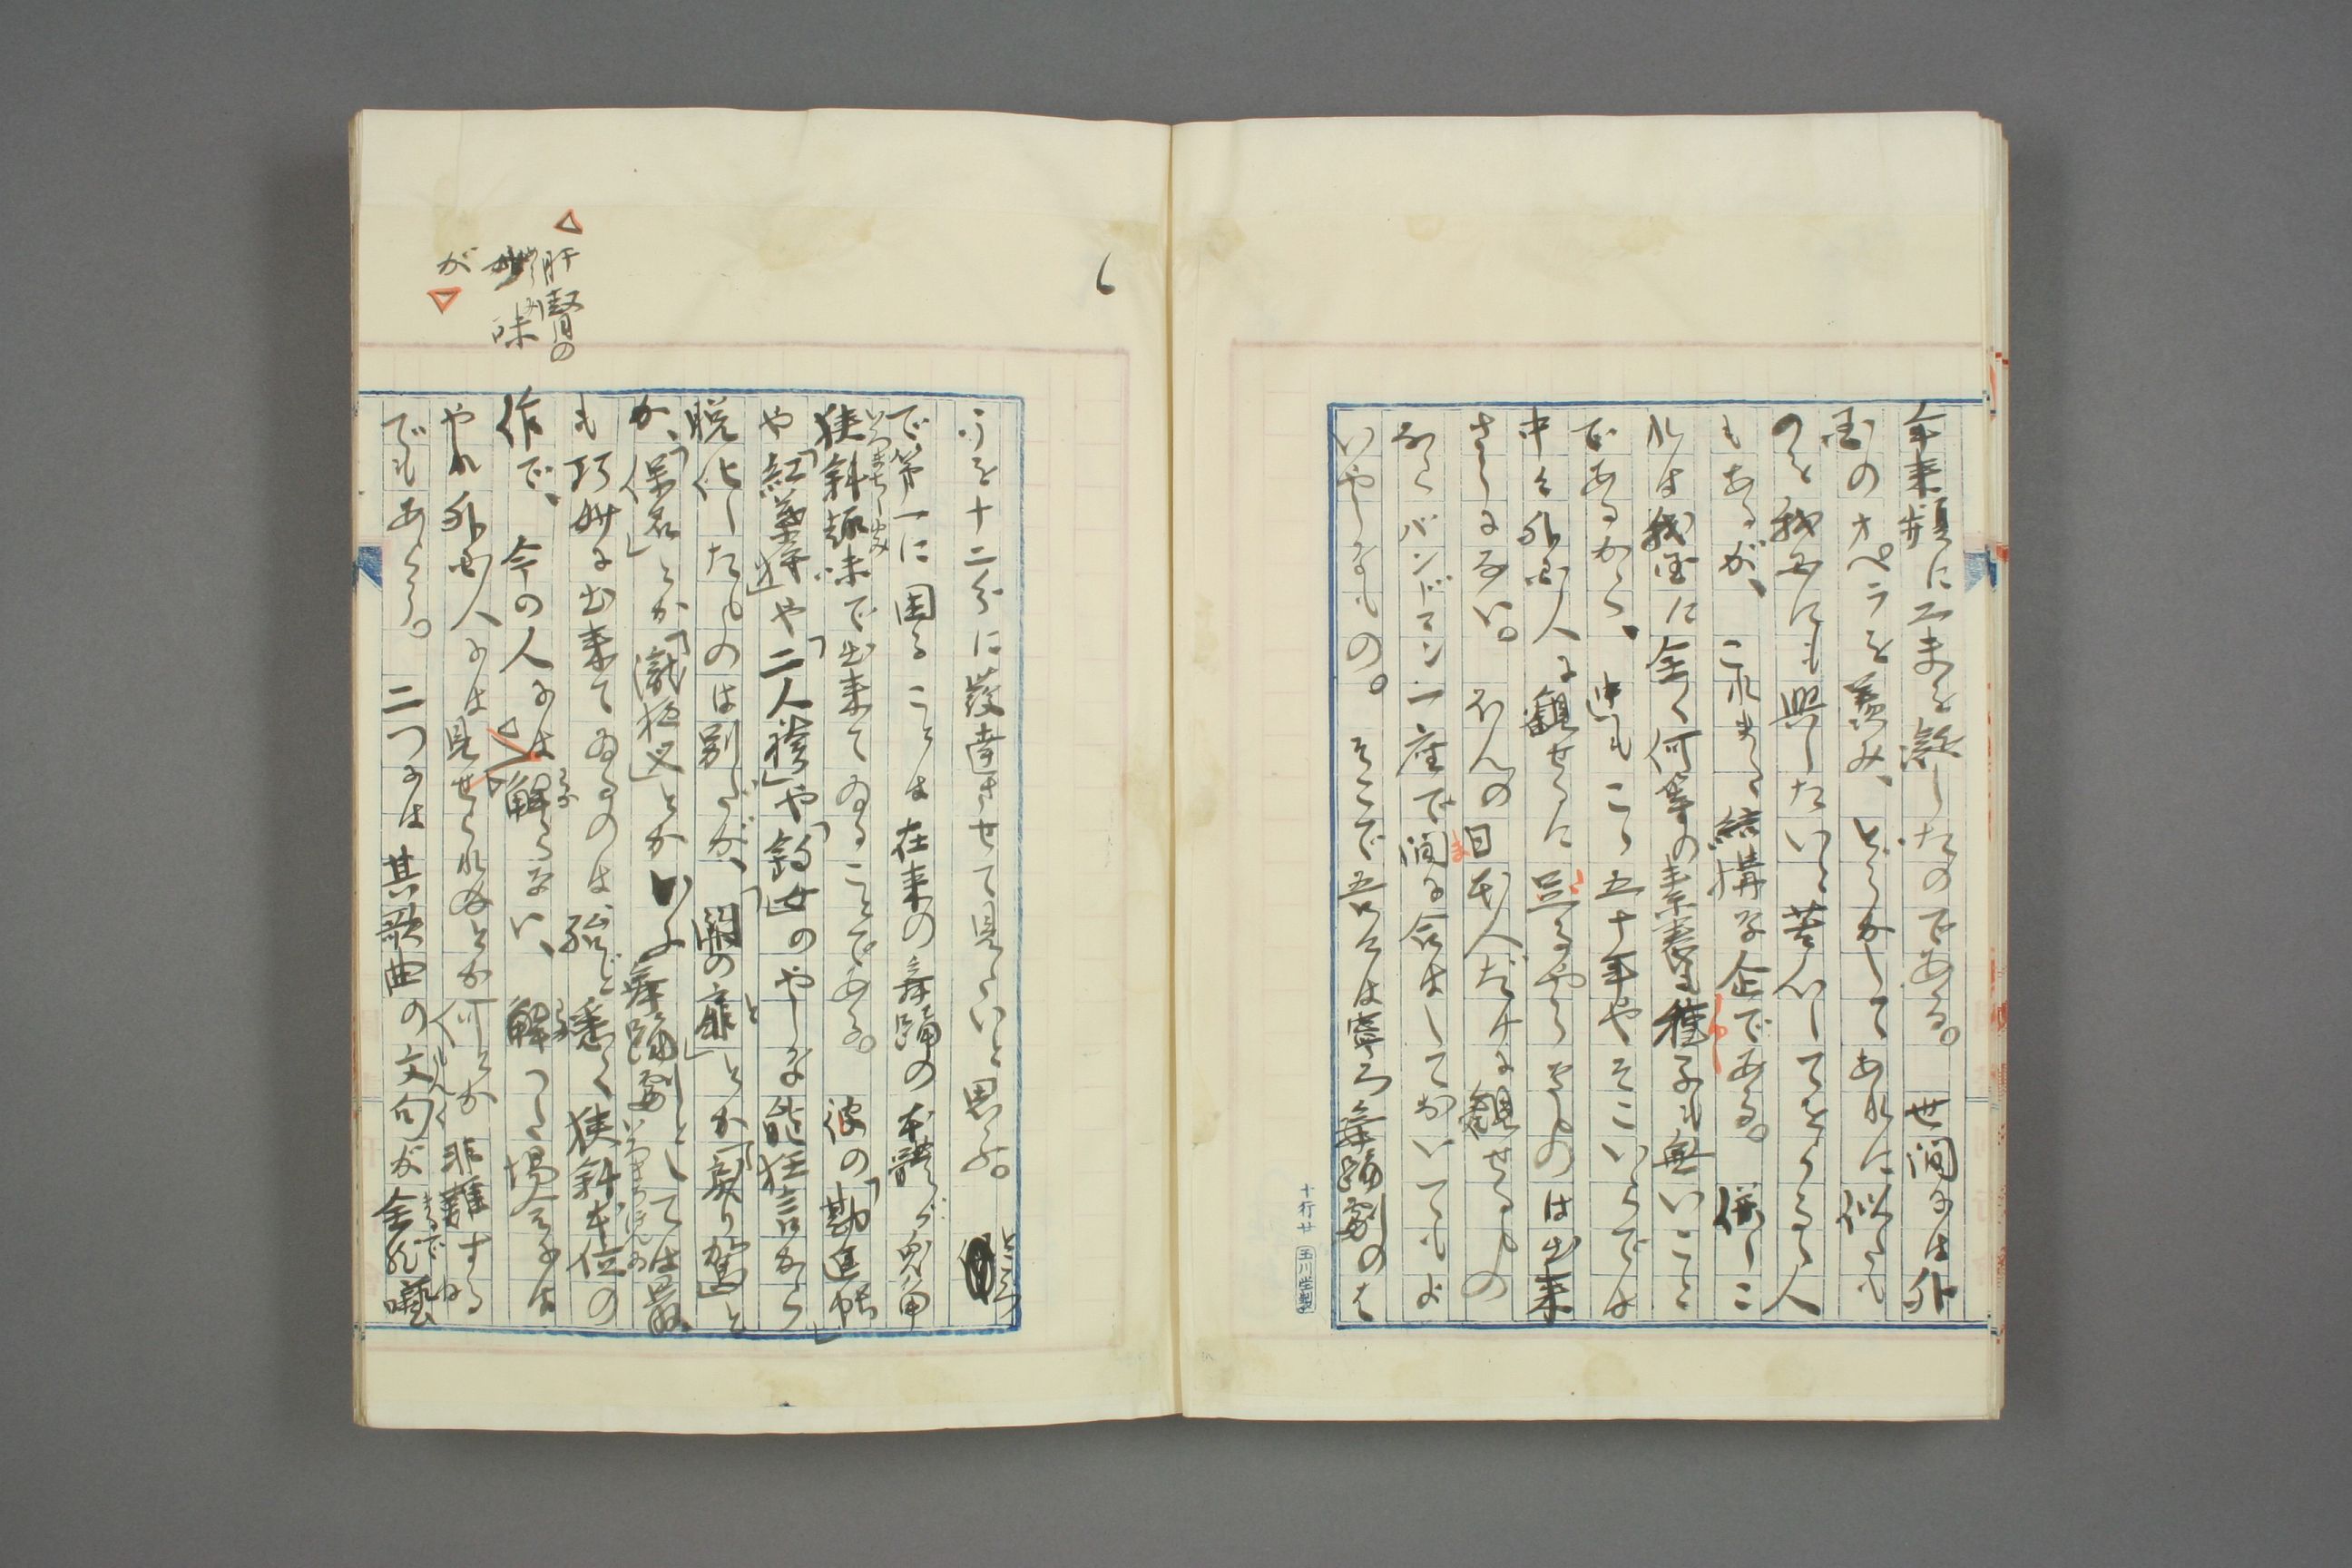 年来頻に工夫を凝したのである。世間には外
国のオペラを羨み、どうかしてあれに似たも
のを我国にも興したいと苦心してをらるゝ人
もあるが、これまた結構な企である。併しこ
れは我国に全く何等の素養も種子も無いこと
であるから、迚もこゝ五十年やそこいらでは
中々外国人に観せるに足るやうなものは出来
さうにない。ほんの日本人だけに観せるもの
ならバンドマン一座で間に合はしておいてもよ
いやうなもの。そこで吾々は寧ろ舞踊劇のは
十行廿 玉川堂製
うを十二分に発達させて見たいと思ふ。ところ
で第一に困ることは在来の舞踊の本体が兎角
狭斜趣味で出来てゐることである。彼の「勧進帳」
や「紅葉狩」や「二人袴」や「釣女」のやうな能狂言から
脱化したものは別だが、「関の扉」とか「戻り駕」と
か、「保名」とか「瀧夜叉」とかいふ舞踊劇としては最
も巧妙に出来てゐるのは、殆ど悉く狭斜本位の
作で、今の人には解らない、解つた場合には
やれ外国人には見せられぬとか何とか非難する
でもあらう。二つには其歌曲の文句が全然囈
肝腎の
妙味
が